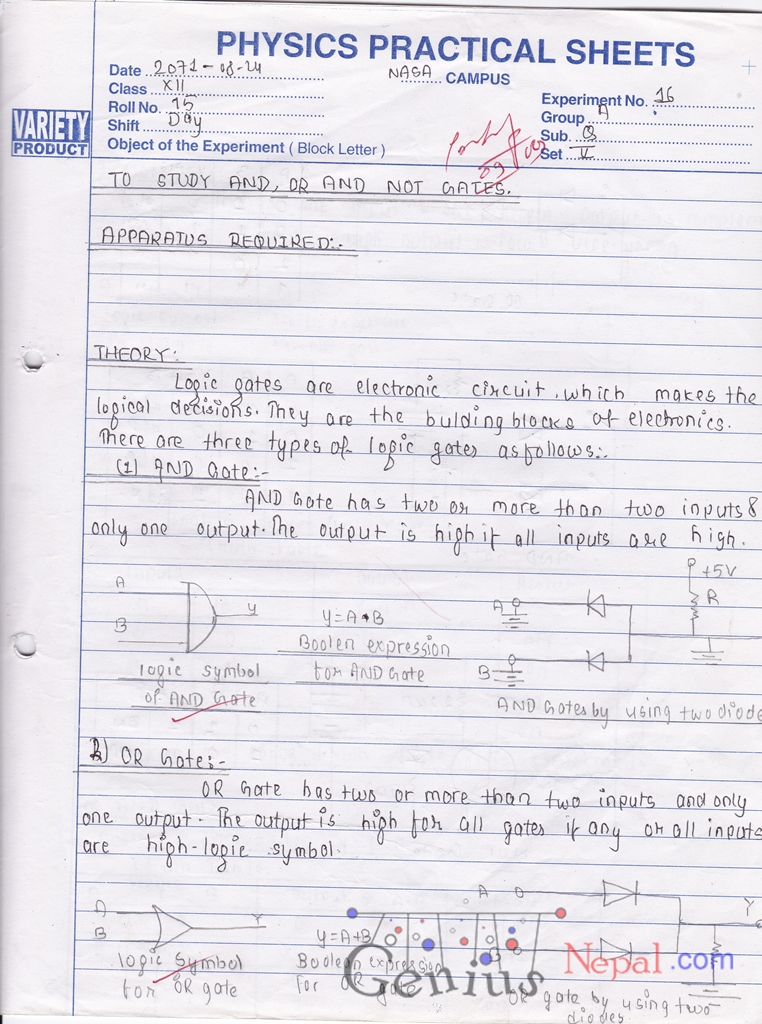 PHYSICS PRACTICAL SHEETS
Date 2071-08-24
NASA CAMPUS
Class XII
Experiment No. 16
Roll No. 15
Group A
Shift Day
Sub.
Set V
VARIETY
PRODUCT
Object of the Experiment ( Block Letter )
09
TO STUDY AND, OR AND NOT GATES.
APPARATUS REQUIRED:-
THEORY:-
Logic gates are electronic circuit, which makes the
logical decisions. They are the bulding blocks of electronics.
There are three types of logic gates as follows:-
(1) AND Gate:-
AND Gate has two or more than two inputs &
only one output. The output is high if all inputs are high.
A
B
Y
Y=A•B
Boolen expression
for AND Gate
logic symbol
of AND Gate
A
B
+5V
R
AND Gates by using two diode
2) OR Gate:-
OR Gate has two or more than two inputs and only
one output. The output is high for all gates if any or all inputs
are high-logic symbol.
A
B
Y
Y=A+B
logic symbol
for OR gate
Boolean expression
for OR gate
A
Y
OR gate by using two
diodes
Genius Nepal.com